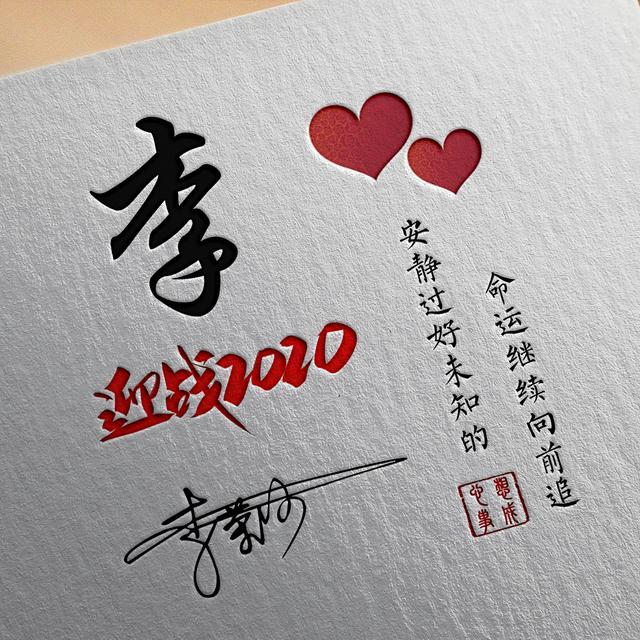 李
迎战2020
命运继续向前追
安静过好未知的
心想
事成